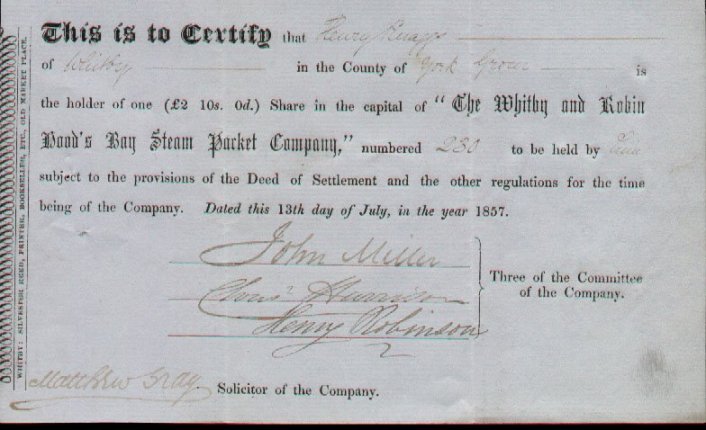 This is to Certify that Henry Knaggs
of Whitby in the County of York Grocer is
the holder of one (£2 10s. 0d.) Share in the capital of "The Whitby and Robin
Hood's Bay Steam Packet Company," numbered 230 to be held by him
subject to the provisions of the Deed of Settlement and the other regulations for the time
being of the Company. Dated this 13th day of July, in the year 1857.
John Miller
Chris' Harrison
Henry Robinson
Three of the Committee
of the Company.
Matthew Gray. Solicitor of the Company.
WHITBY: SILVESTER REED, PRINTER, BOOKSELLER, ETC., OLD MARKET PLACE.